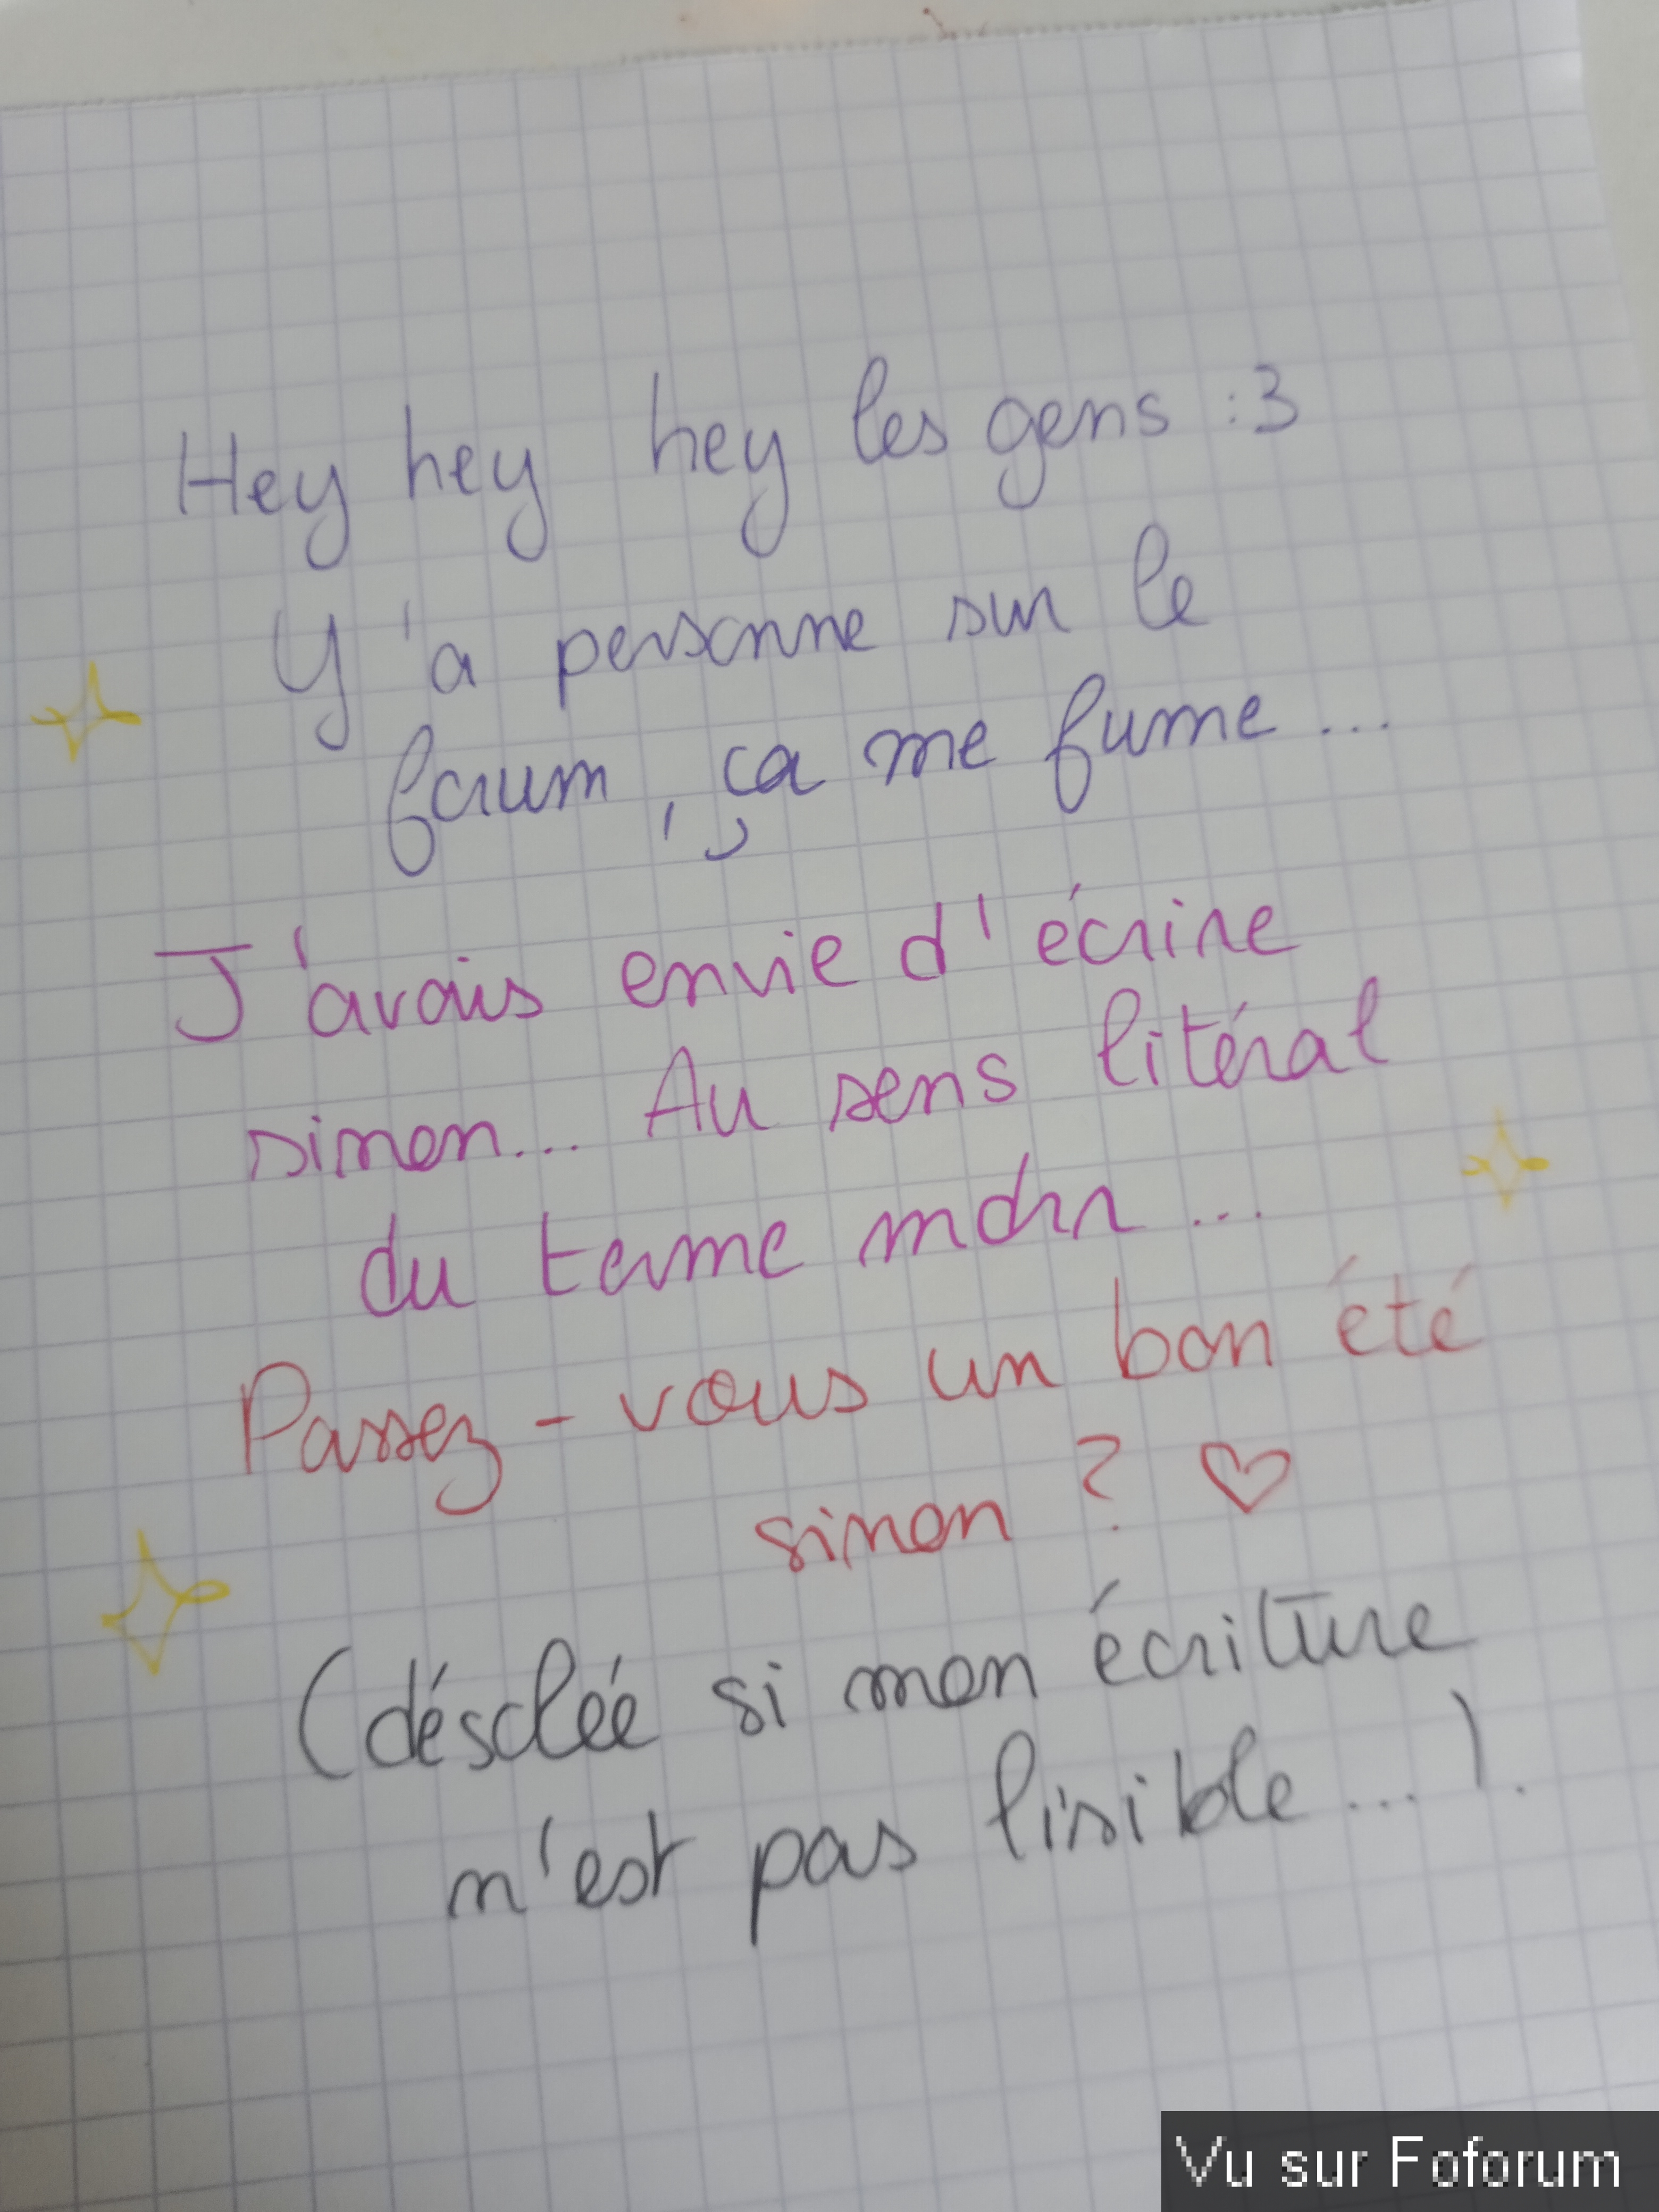 Hey hey hey les gens :3
Y'a personne sur le
forum, ça me fume...
J'avais envie d'écrire
sinon... Au sens litéral
du terme mdrr...
Passez-vous un bon été
sinon ? ♡
(désolée si mon écriture
n'est pas lisible...).
Vu sur Foforum